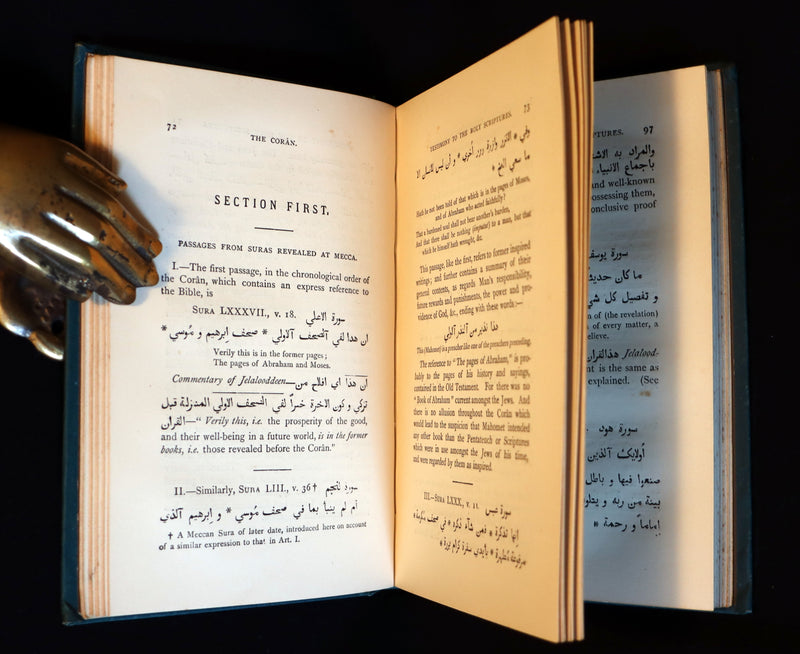 72
THE CORÂN.
SECTION FIRST,
PASSAGES FROM SURAS REVEALED AT MECCA.
I.—The first passage, in the chronological order of
the Corân, which contains an express reference to
the Bible, is
SURA LXXXVII., v. 18. سورة الاعلي
ان هذا لفي الصحف الاولي * صحف ابرهيم و موسي *
Verily this is in the former pages;
The pages of Abraham and Moses.
Commentary of Jelalooddeen—ان هذا اي افلاح من
تزكي و كون الاخرة خيراً لفي الصحف الاولي المنزلة قبل
القران—“ Verily this, i.e. the prosperity of the good,
and their well-being in a future world, is in the former
books, i.e. those revealed before the Corân.”
II.—Similarly, SURA LIII., v. 36† سورة النجم
ام لم ينبأ بما في صحف موسي * و ابرهيم الذي
† A Meccan Sura of later date, introduced here on account
of a similar expression to that in Art. I.
73
TESTIMONY TO THE HOLY SCRIPTURES.
وفي * الا تزر وازرة وزر اخري * و ان ليس للانسان الا
ما سعي الخ *
Hath he not been told of that which is in the pages of Moses,
and of Abraham who acted faithfully?
That a burdened soul shall not bear another's burden,
And that there shall be nothing (imputed) to a man, but that
which he himself hath wrought, &c.
This passage, like the first, refers to former inspired
writings; and further contains a summary of their
general contents, as regards Man's responsibility,
future rewards and punishments, the power and pro-
vidence of God, &c., ending with these words:—
هذا نذير من النذر الاولي
This (Mahomet) is a preacher like one of the preachers preceding.
The reference to “The pages of Abraham,” is pro-
bably to the pages of his history and sayings,
contained in the Old Testament. For there was no
“Book of Abraham” current amongst the Jews. And
there is no allusion throughout the Corân which
would lead to the suspicion that Mahomet intended
any other book than the Pentateuch or Scriptures
which were in use amongst the Jews of his time,
and were regarded by them as inspired.
III.—SURA LXXX., v. 11. سورة عبس
انها تذكرة * فمن شاء ذكره * في صحف مكرمة *
مرفوعة مطهرة * بايدي سفرة كرام بررة *
PTURES. 97
والمراد به
باجماع الانبياء
and well-known
ossessing them,
onclusive proof
سورة يوسف
ما كان حديث
و تفصيل كل
of (the revelation)
of every matter, a
lieve.
هذا القران Jelalood-
nt is the same as
explained. (See
سورة هود
اولايك الذين
صنعوا فيها و باطل
بينة من ربه و
اماما و رحمة *